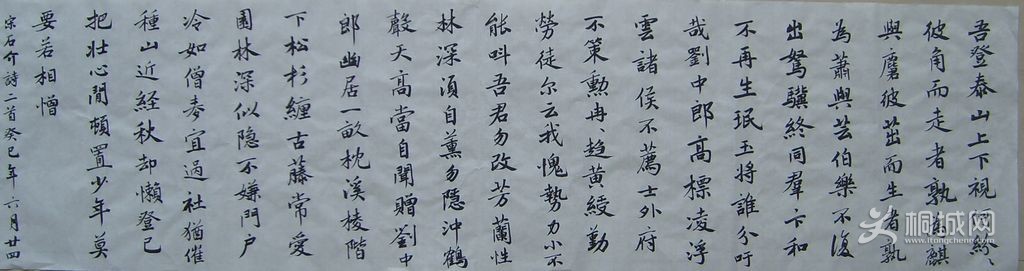 吾登泰山上下视囚紛々
彼角而走者孰為麒
與麏彼茁而生者孰
為蕭與芸伯樂不復
出駑驥終同羣卞和
不再生珉玉將誰分吁
哉劉中郎高標凌浮
雲諸侯不薦士外府
不策勲冉々趍黄綬勤
勞徒尔云我愧勢力小不
能叫吾君勿改芳蘭性
林深須自薰勿隱沖鶴
聲天高當自聞贈劉中
郎幽居一畝枕溪棱階
下松杉纏古藤常愛
園林深似隐不嫌門户
冷如僧麥宜過社猶催
種山近経秋却懶登已
把壮心閒頓置少年莫
要若相憎
宗石介詩二首癸巳年六月廿四
桐城网
www.itongcheng.com